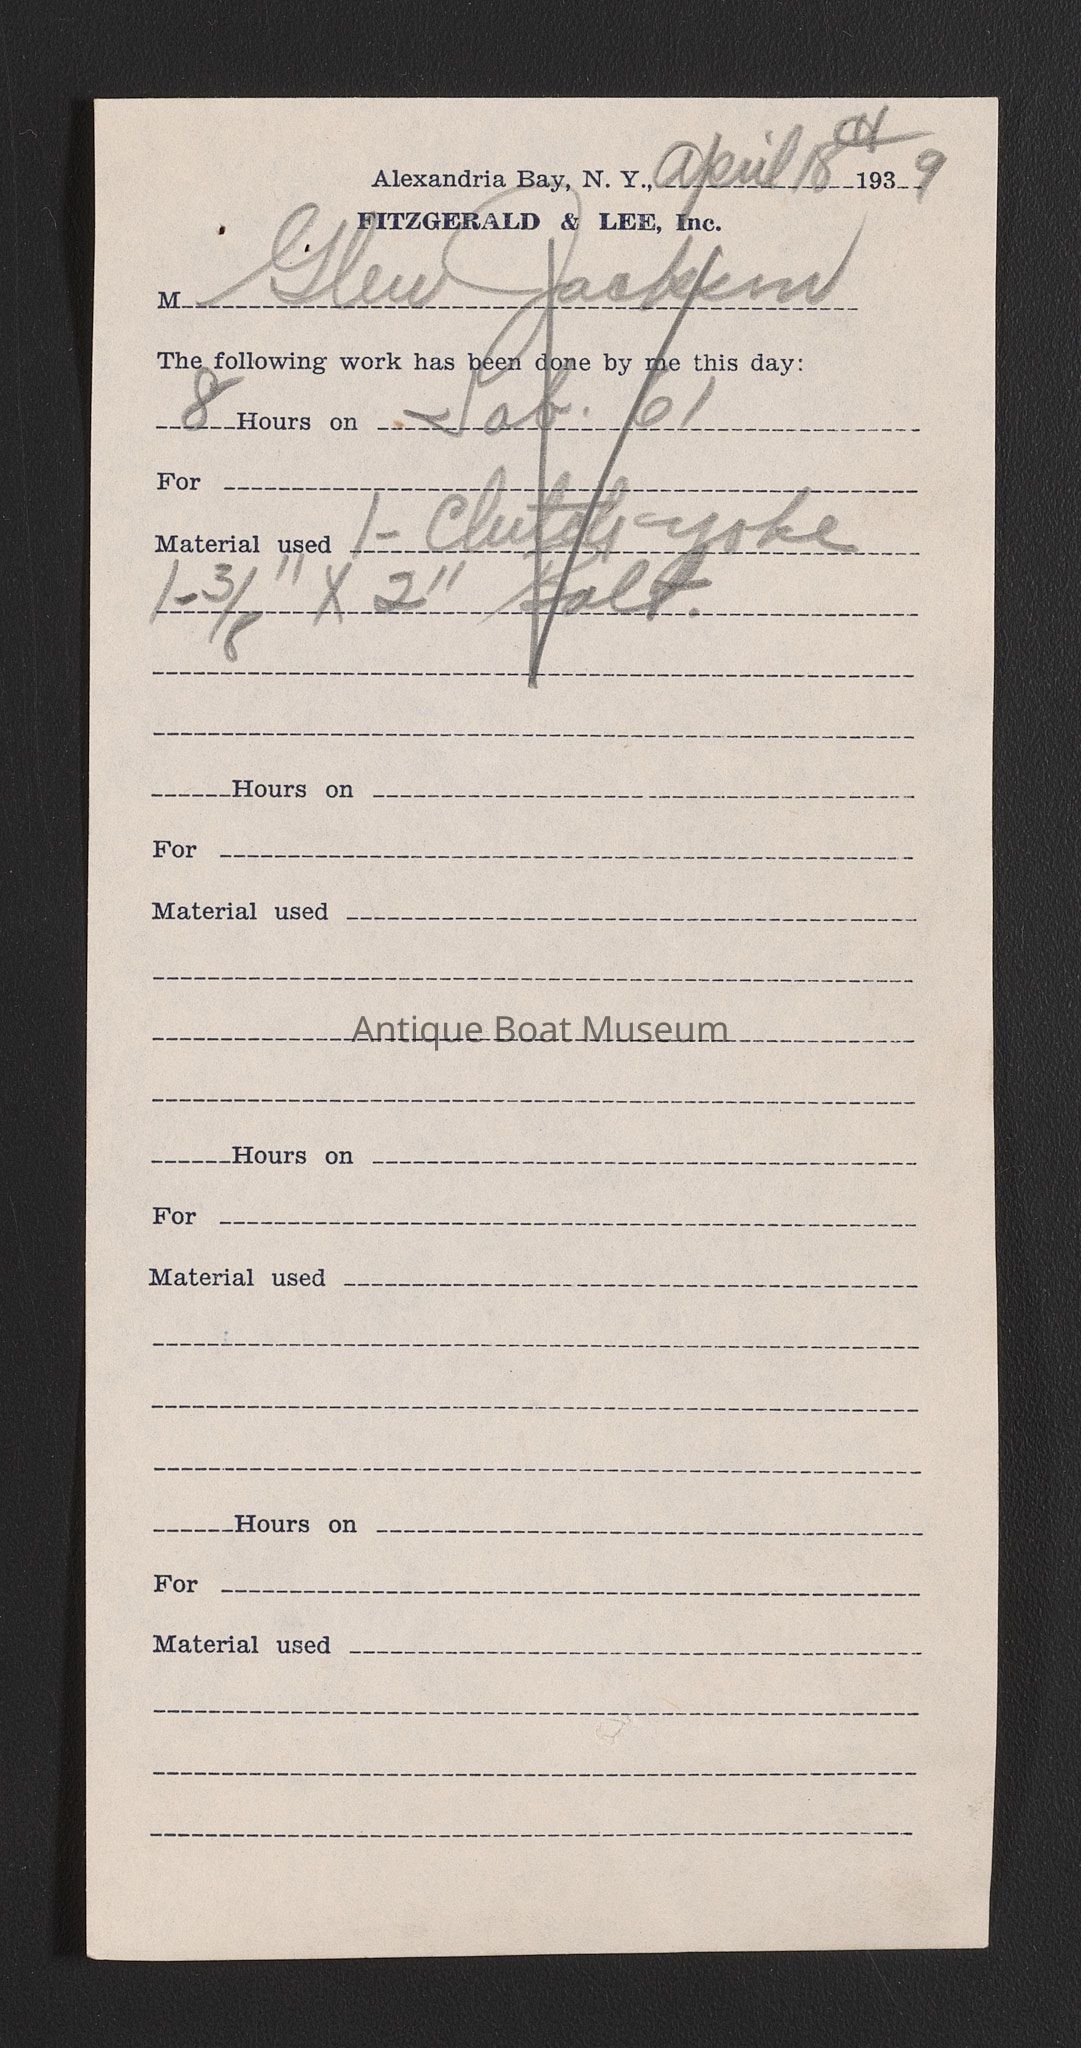 Alexandria Bay, N. Y., April 18th 1939
FITZGERALD & LEE, Inc.
M Glen Jackson
The following work has been done by me this day:
8 Hours on 61
For
Material used 1- Clutch-yoke
1-3/8" X 2" Bolt.
Hours on
For
Material used
Antique Boat Museum
Hours on
For
Material used
Hours on
For
Material used